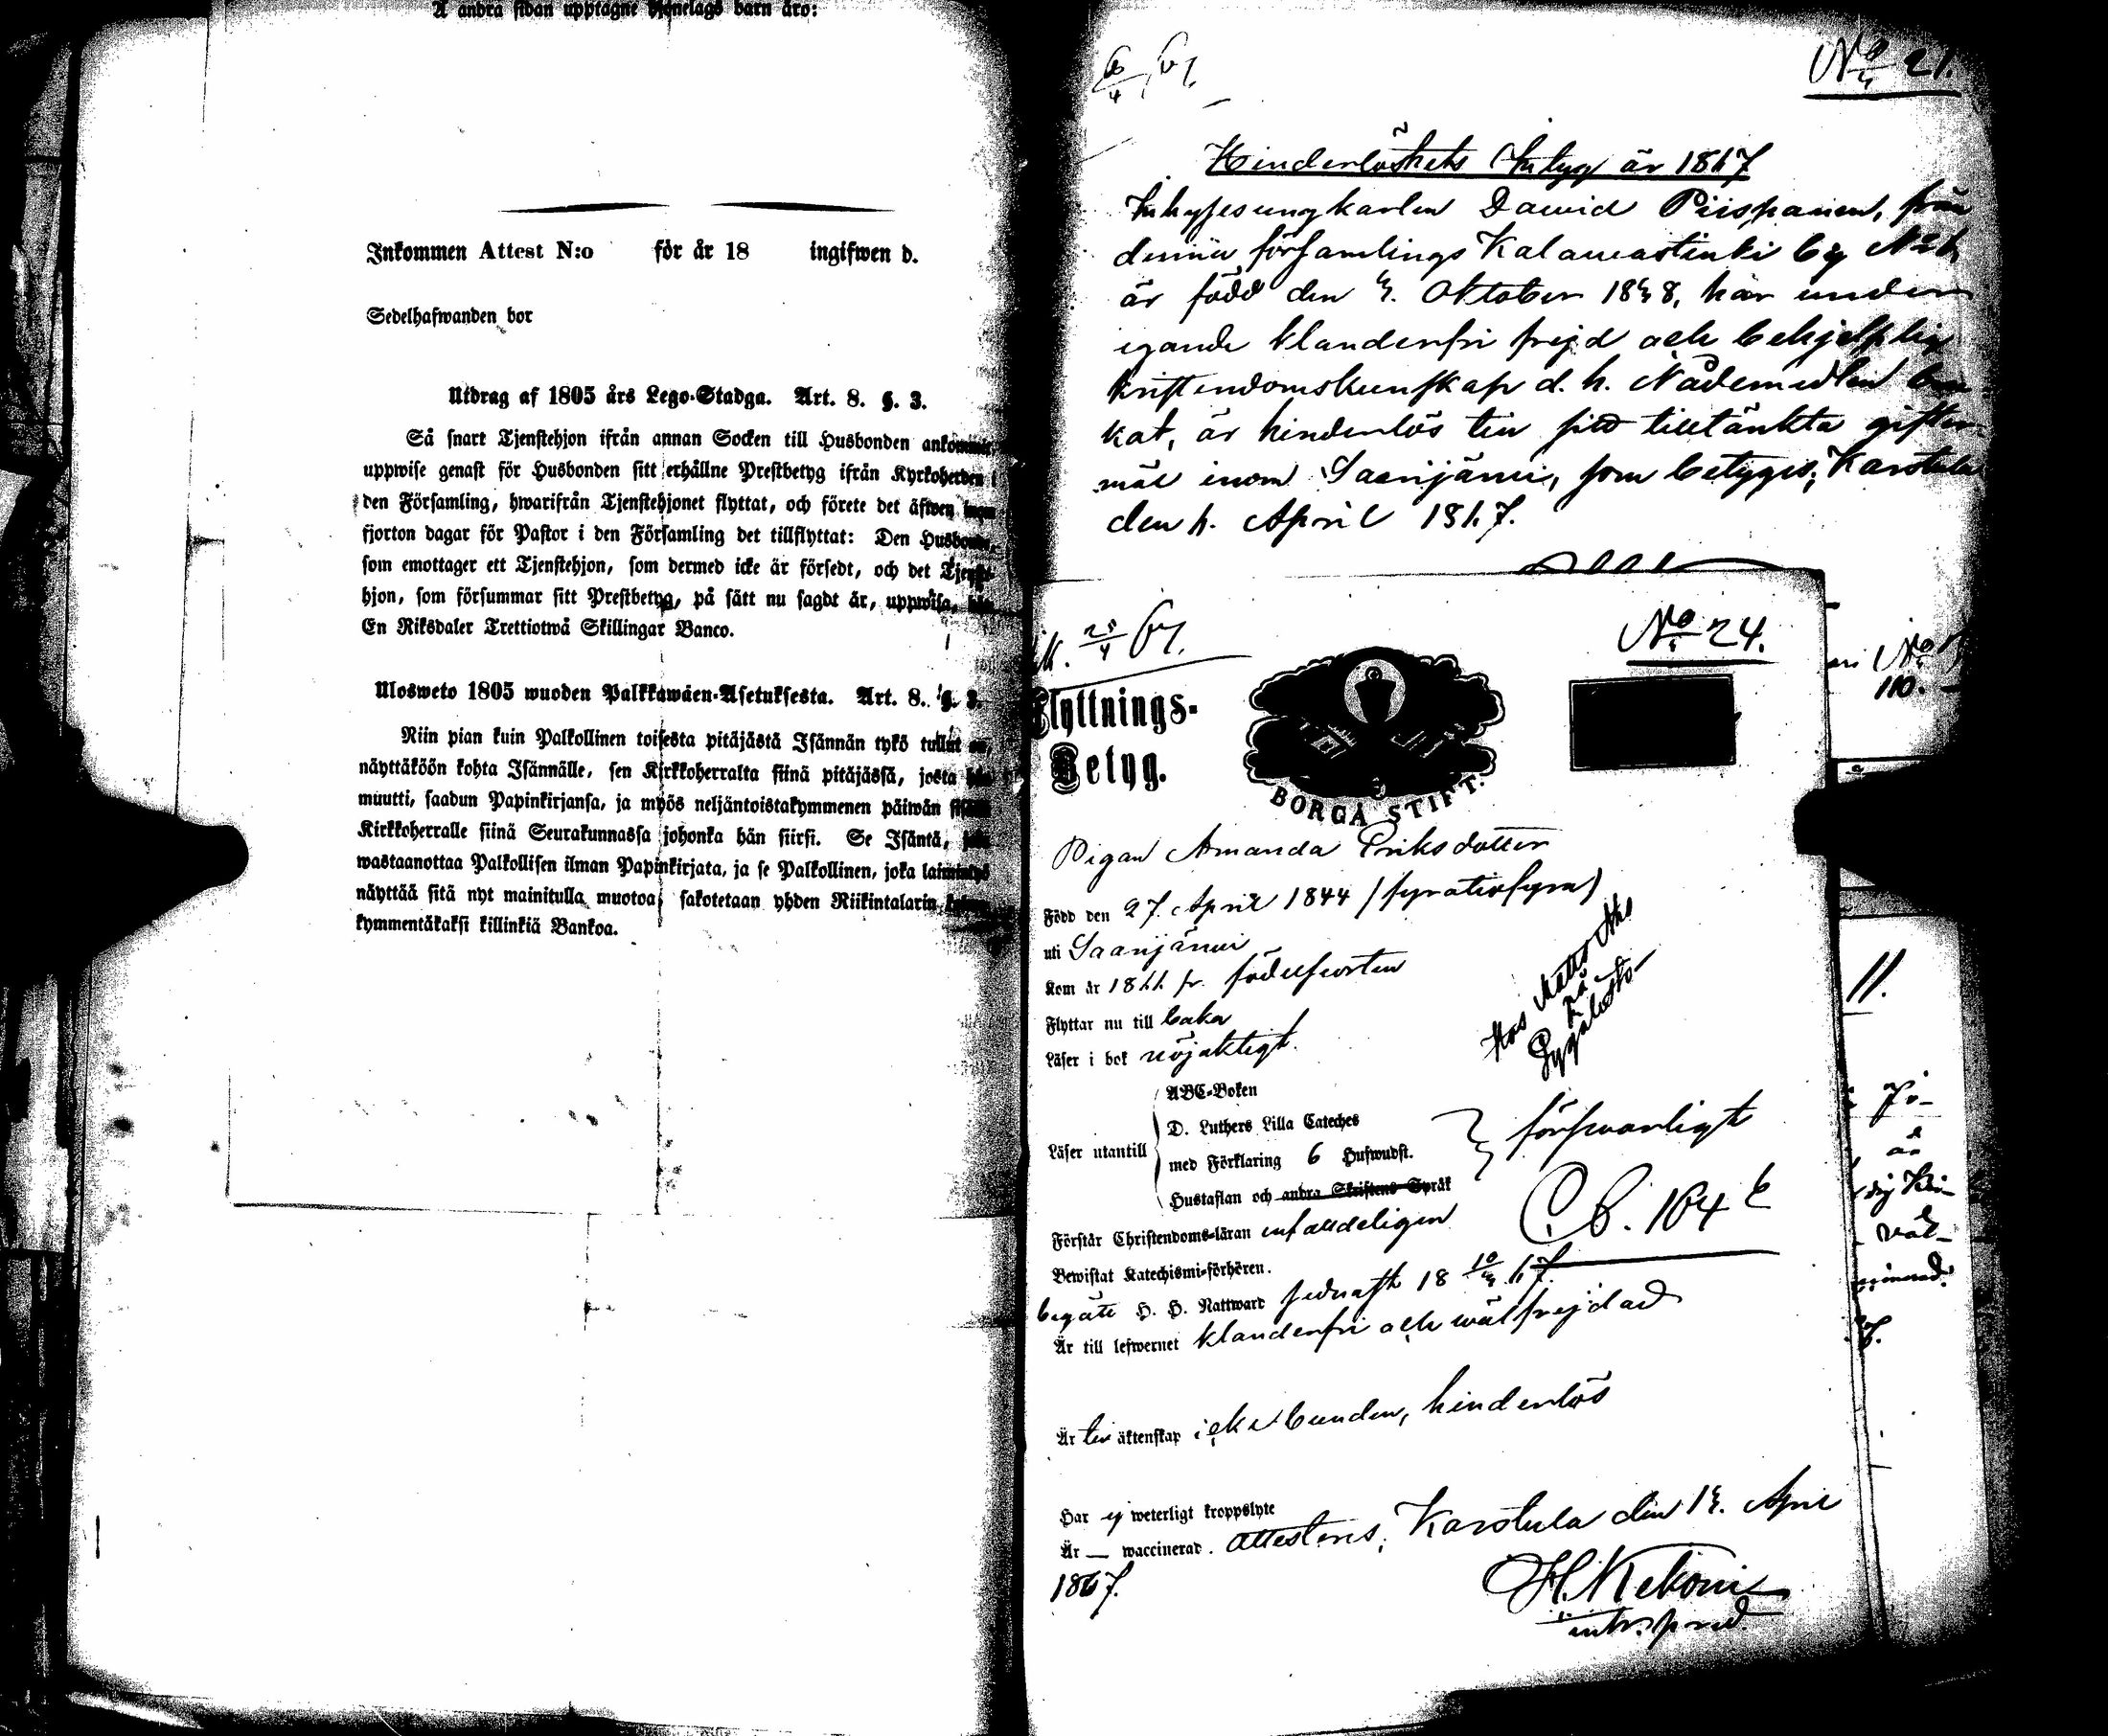 Å andra sidan upptagne Hjonelags barn äro:
Inkommen Attest N:o för år 18 ingifwen d.
Sedelhafwanden bor
Utdrag af 1805 års Lego-Stadga. Art. 8. §. 3.
Så snart Tjenstehjon ifrån annan Socken till Husbonden ankommer,
uppwise genast för Husbonden sitt erhållne Prestbetyg ifrån Kyrkoherden i
den Församling, hwarifrån Tjenstehjonet flyttat, och förete det äfwen inom
fjorton dagar för Pastor i den Församling det tillflyttat: Den Husbonde,
som emottager ett Tjenstehjon, som dermed icke är försedt, och det Tjenste-
hjon, som försummar sitt Prestbetyg, på sätt nu sagdt är, uppwisa,
En Riksdaler Trettiotwå Skillingar Banco.
Ulosweto 1805 wuoden Palkkawäen-Asetuksesta. Art. 8. §. 3.
Niin pian kuin Palkollinen toisesta pitäjästä Isännän tykö tullut on,
näyttäköön kohta Isännälle, sen Kirkkoherralta siinä pitäjässä, josta hän
muutti, saadun Papinkirjansa, ja myös neljäntoistakymmenen päiwän sisällä
Kirkkoherralle siinä Seurakunnassa johonka hän siirsi. Se Isäntä, joka
wastaanottaa Palkollisen ilman Papinkirjata, ja se Palkollinen, joka laiminlyö
näyttää sitä nyt mainitulla muotoa, sakotetaan yhden Riikintalarin
kymmentäkaksi killinkiä Bankoa.
6/4 67.
No 21.
Hinderlöshets Intyg år 1867
Inhysesungkarlen Dawid Piispanen, från
denna församlings Kalmastinki by
är född den 4. Oktober 1848, har under
egande klanderfri frejd och behjelplig
kristendomskunskap d. h. Nådemedlen bru-
kat, är hinderlös till sitt tilltänkta gifter-
mål inom Saarijärvi, som betygas; Karstula
den 6. April 1867.
25/4 67.
No 24.
Flyttnings-
Betyg.
BORGÅ STIFT.
Pigan Amanda Eriksdotter
Född den 27. April 1844 (fyratiofyra)
uti Saarijärvi
Kom år 1866 fr. födelseorten
Flyttar nu till baka
Läser i bok nöjaktigt.
Hos Matts Aho
på
Pyhälestö
Läser utantill
ABC-Boken
D. Luthers Lilla Cateches
med Förklaring 6 Hufwudst.
Hustaflan och andra Skriftens Språk
försvarligt
C.B. 164
Förstår Christendoms-läran enfaldeligen
Bewistat Katechismi-förhören.
begått H. H. Nattward sednast 18 10/3 67.
Är till lefwernet klanderfri och wälfrejdad
Är till äktenskap icke bunden, hinderlös
Har ej weterligt kroppslyte
Är — waccinerad. attesteras; Karstula den 14. April
1867.
H. Kekoni
intr. pred.
11.